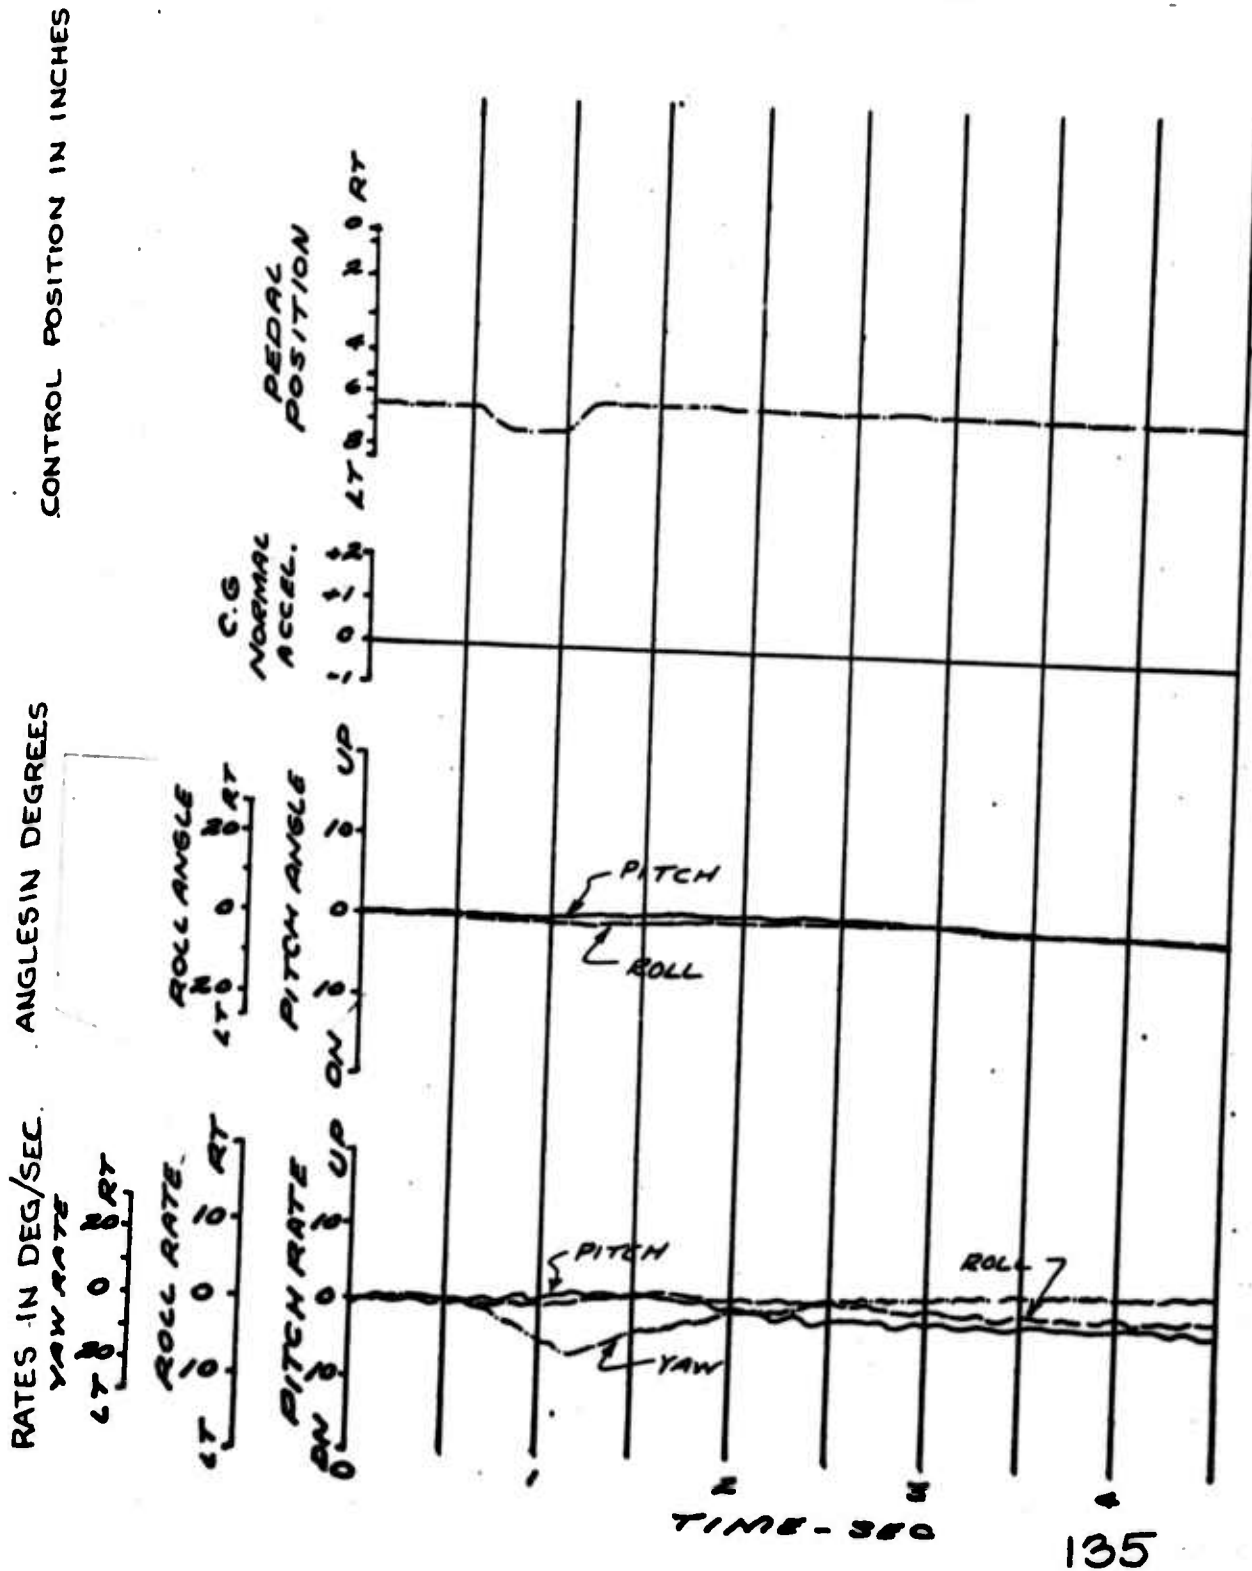 CONTROL POSITION IN INCHES
PEDAL
POSITION
LT 8 6 4 2 0 RT
C.G
NORMAL
ACCEL.
-1 0 +1 +2
ANGLES IN DEGREES
ROLL ANGLE
LT 20 0 20 RT
PITCH ANGLE
DN 10 0 10 UP
PITCH
ROLL
RATES IN DEG/SEC.
YAW RATE
LT 20 0 20 RT
ROLL RATE
LT 10 0 10 RT
PITCH RATE
DN 10 0 10 UP
PITCH
YAW
ROLL
0 1 2 3 4
TIME - SEC
135